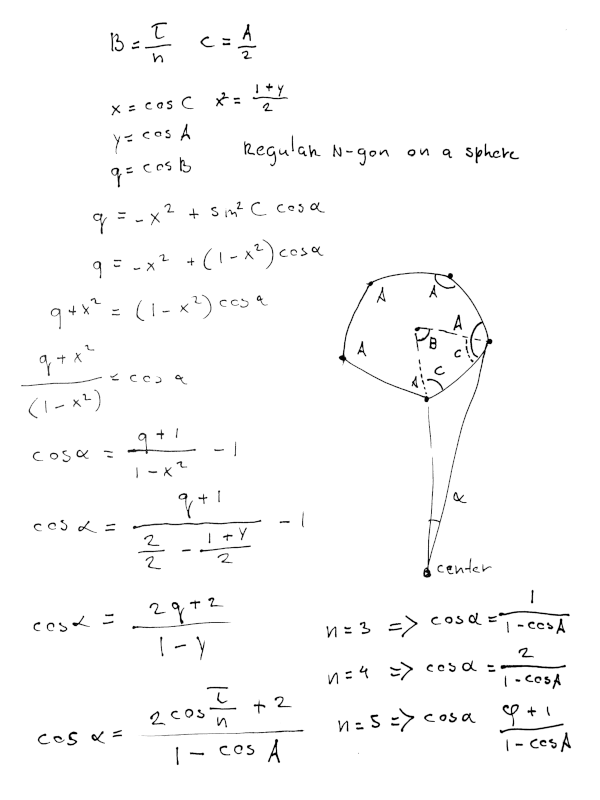 B = τ/n   C = A/2
x = cos C   x² = (1+y)/2
y = cos A
q = cos B
Regular N-gon on a sphere
q = -x² + sin² C cos α
q = -x² + (1-x²) cos α
q + x² = (1-x²) cos α
(q + x²)/(1-x²) = cos α
cos α = (q+1)/(1-x²) - 1
cos α = (q+1)/(2/2 - (1+y)/2) - 1
cos α = (2q+2)/(1-y)
cos α = (2 cos τ/n + 2)/(1 - cos A)
A
A
A
A
A
B
C
C
α
center
n=3 => cos α = 1/(1-cos A)
n=4 => cos α = 2/(1-cos A)
n=5 => cos α (φ+1)/(1-cos A)